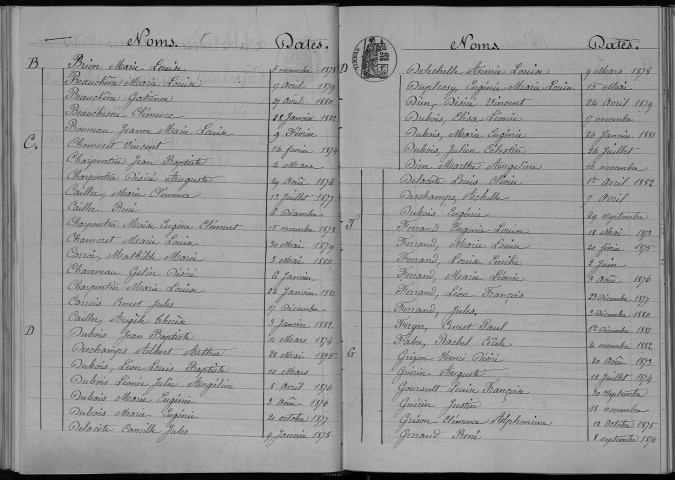 Noms. Dates.
B Brion Marie Louise 8 novembre 1878
Beauchêne Marie Louise 17 Avril 1879
Beauchêne Gatienne 27 Avril 1880
Beauchesne Clémence 22 Janvier 1882
Bonneau Jeanne Marie Louise 9 Février
C. Chamaret Vincent 16 février 1874
Charpentier Jean Baptiste 4 Mars
Charpentier Désiré Auguste 29 Août 1876
Cailler, Marie Clémence 13 Juillet 1877
Cailler René 6 Décembre
Charpentier Moïse Eugène Clément 15 novembre 1878
Chamaret Marie Louise 30 Mai 1879
Carroi, Mathilde Marie 3 Mai 1880
Chaveneau Gelin Désiré 6 Janvier
Charpentier Marie Louise 26 Janvier 1881
Carrois Ernest Jules 17 Décembre
Cailler Angèle Thérèse 3 Janvier 1882
D Dubois Jean Baptiste 11 Mars 1874
Deschamps Albert Arthur 28 Mai 1875
Dubois, Léon Louis Baptiste 20 Mars
Dubois Léonie Julie Angéline 8 Avril 1876
Dubois Marie Eugénie 2 Août 1876
Dubois Marie Eugénie 20 octobre 1877
Delacôte Camille Jules 9 Janvier 1878
TIMBRE
Noms. Dates.
D Delechelle Aimée Louise 9 Mars 1878
Duplessy Eugénie Marie Louise 15 Mai
Dien, Désiré Vincent 24 Avril 1879
Dubois, Elisa Léonie 17 novembre
Dubois, Marie Eugénie 26 Janvier 1881
Dubois, Julien Célestin 26 Juillet
Dien Marthe Angéline 16 novembre
Delacôte Louis Olivier 1er Avril 1882
Deschamps, Achille 7 Avril
Dubois Eugénie 29 septembre
F Ferrand Eugénie Louise 18 Mai 1873
Ferrand, Marie Louise 20 février 1875
Ferrand, Louise Emilie 2 Juin
Ferand, Marie Léonie 3 Août 1876
Ferrand, Léon François 23 Décembre 1877
Ferrand, Jules, 3 Décembre 1880
Ferger, Ernest Paul 1er Décembre 1881
Fabre, Rachel Cécile 4 novembre 1882
G Grison Henri Désiré 20 Août 1873
Guérin Auguste 18 Juillet 1874
Gourault Louise Françoise 30 septembre
Guérin Justin 18 novembre
Grison Clémence Alphonsine 18 Octobre 1875
Gerraud René 8 septembre 1876